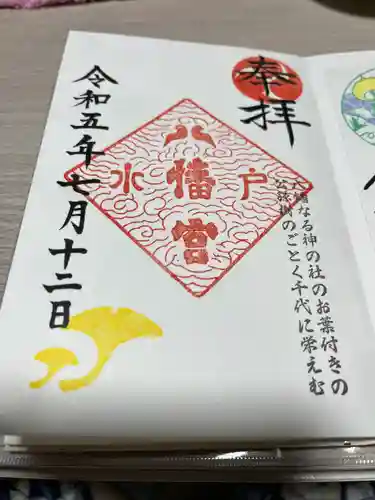 奉拝
水戸
八幡宮
なる神の社のお葉付きの
公孫樹のごとく千代に栄えむ
令和五年七月十二日